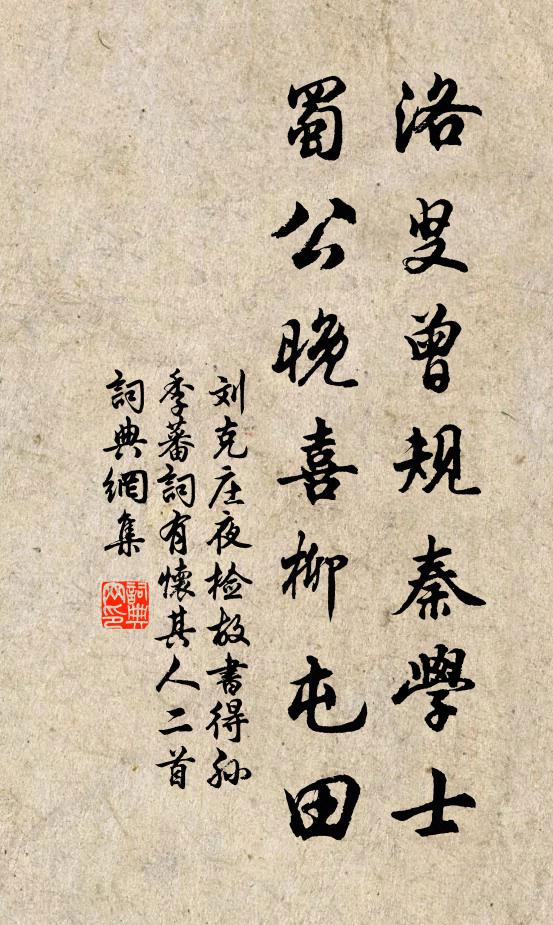 洛叟曾规秦學士
蜀公晚喜柳屯田
刘克庄夜检故書得孙
季蕃詞有懷其人二首
詞典網集
詞典網印